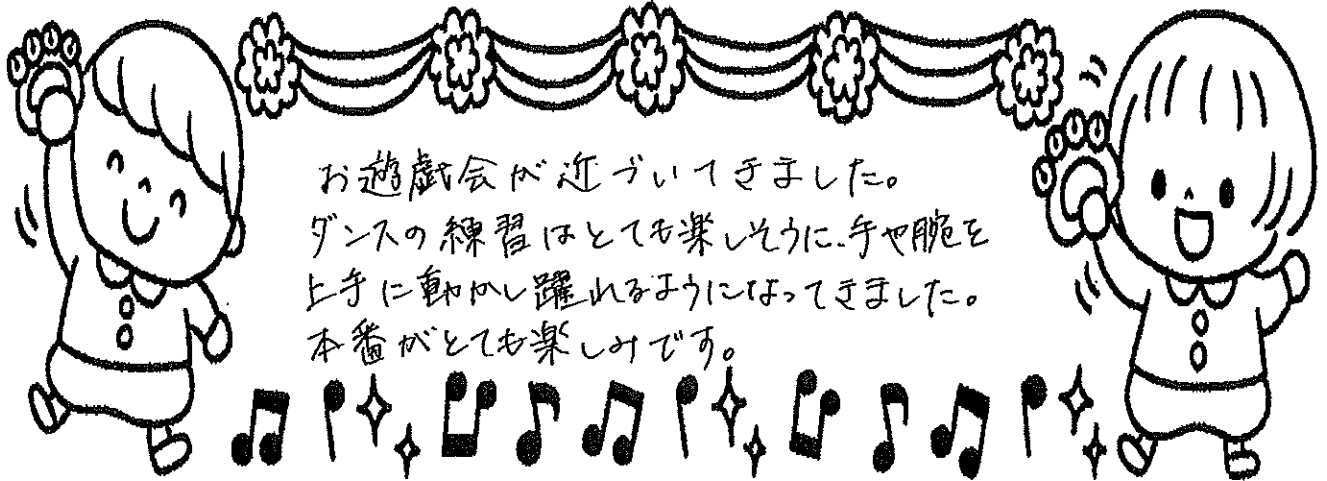 お遊戯会が近づいてきました。
ダンスの練習はとても楽しそうに、手や腕を
上手に動かし躍れるようになってきました。
本番がとても楽しみです。